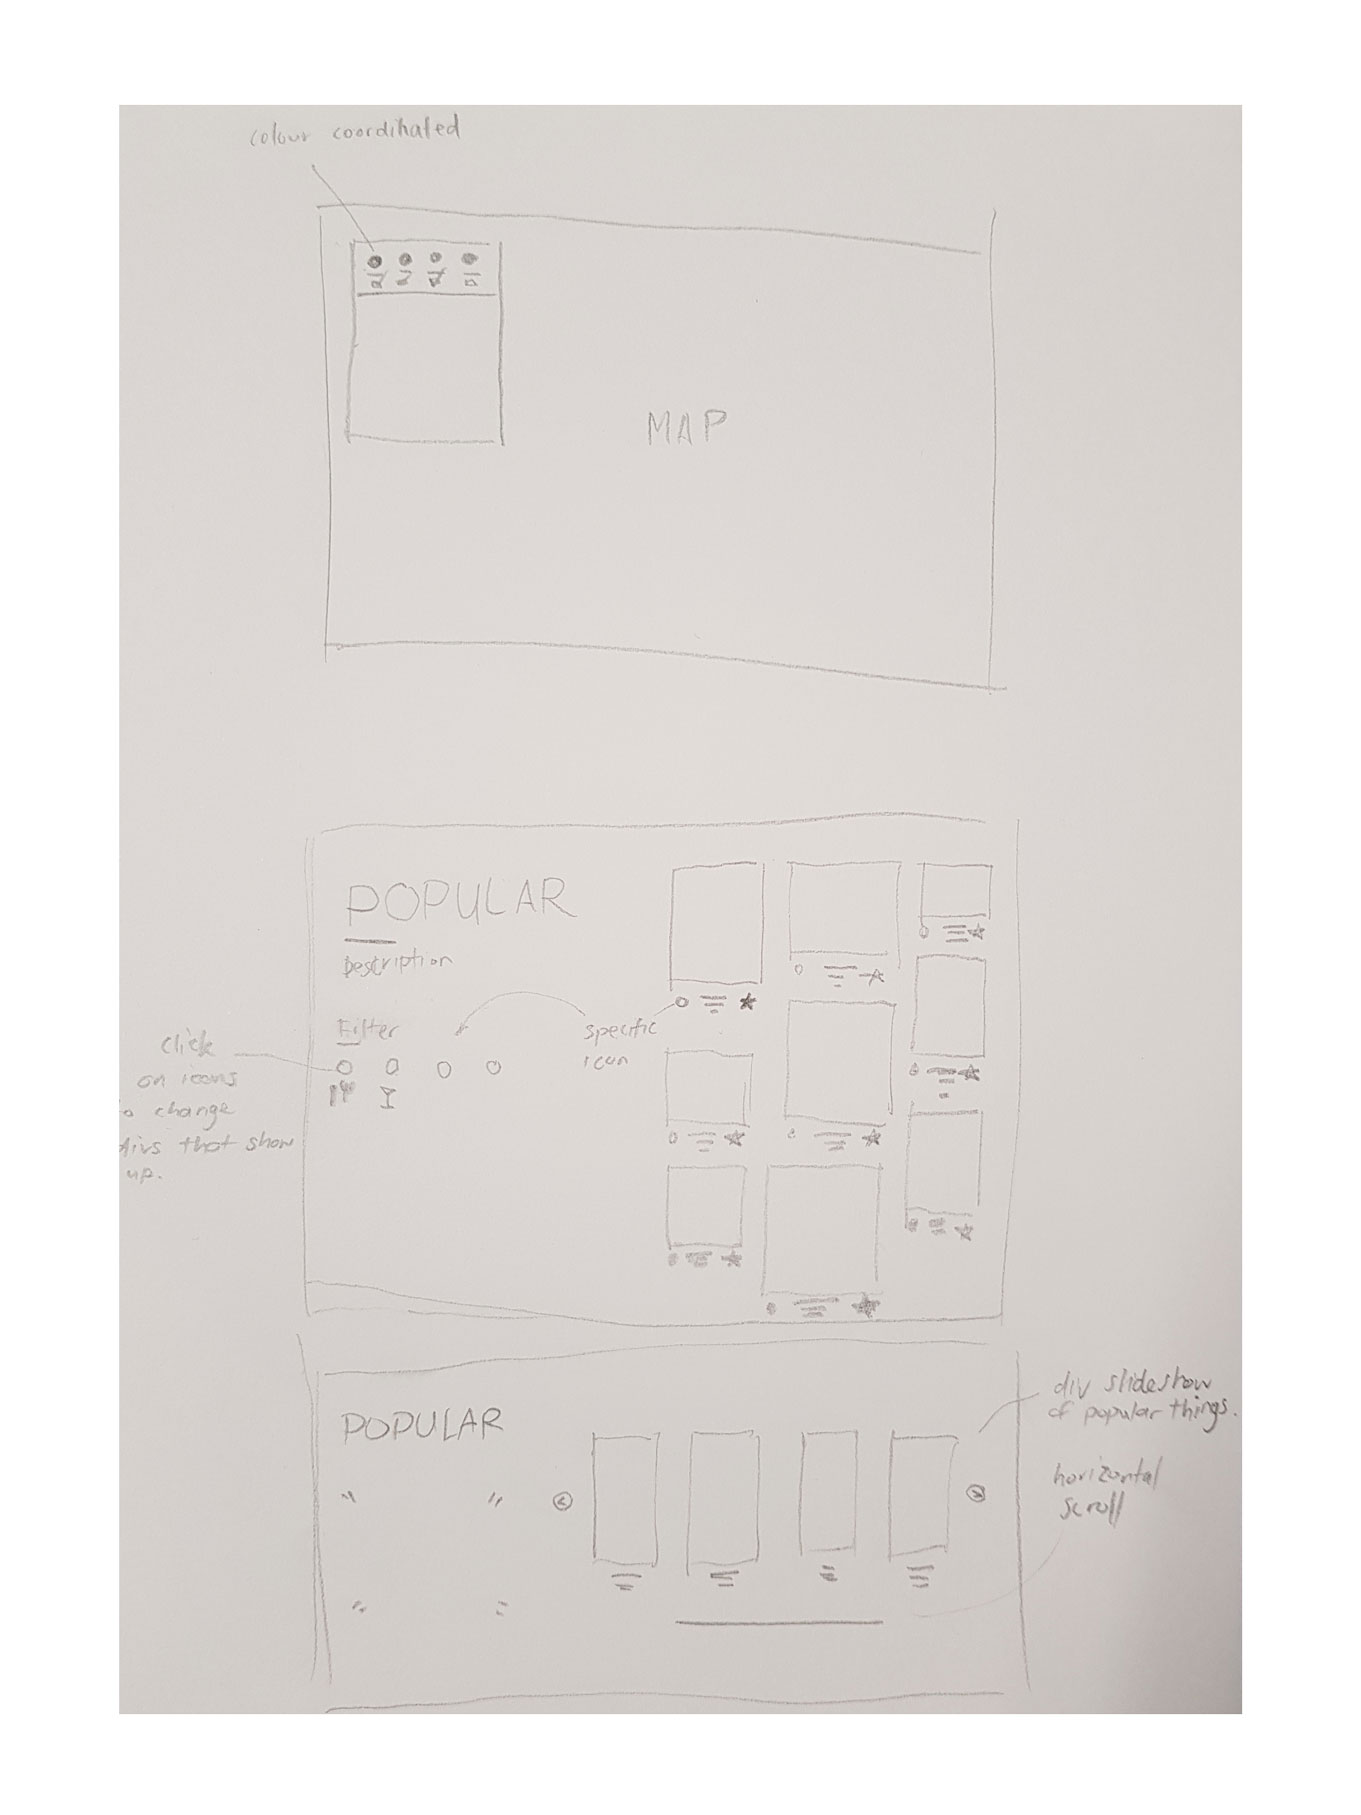 colour coordinated
MAP
POPULAR
Description
Filter
specific
icon
click
on icons
to change
divs that show
up.
POPULAR
div slideshow
of popular things.
horizontal
scroll